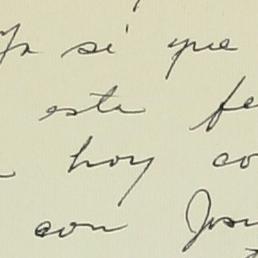 Ya si que
este fe
hoy co
con Josu